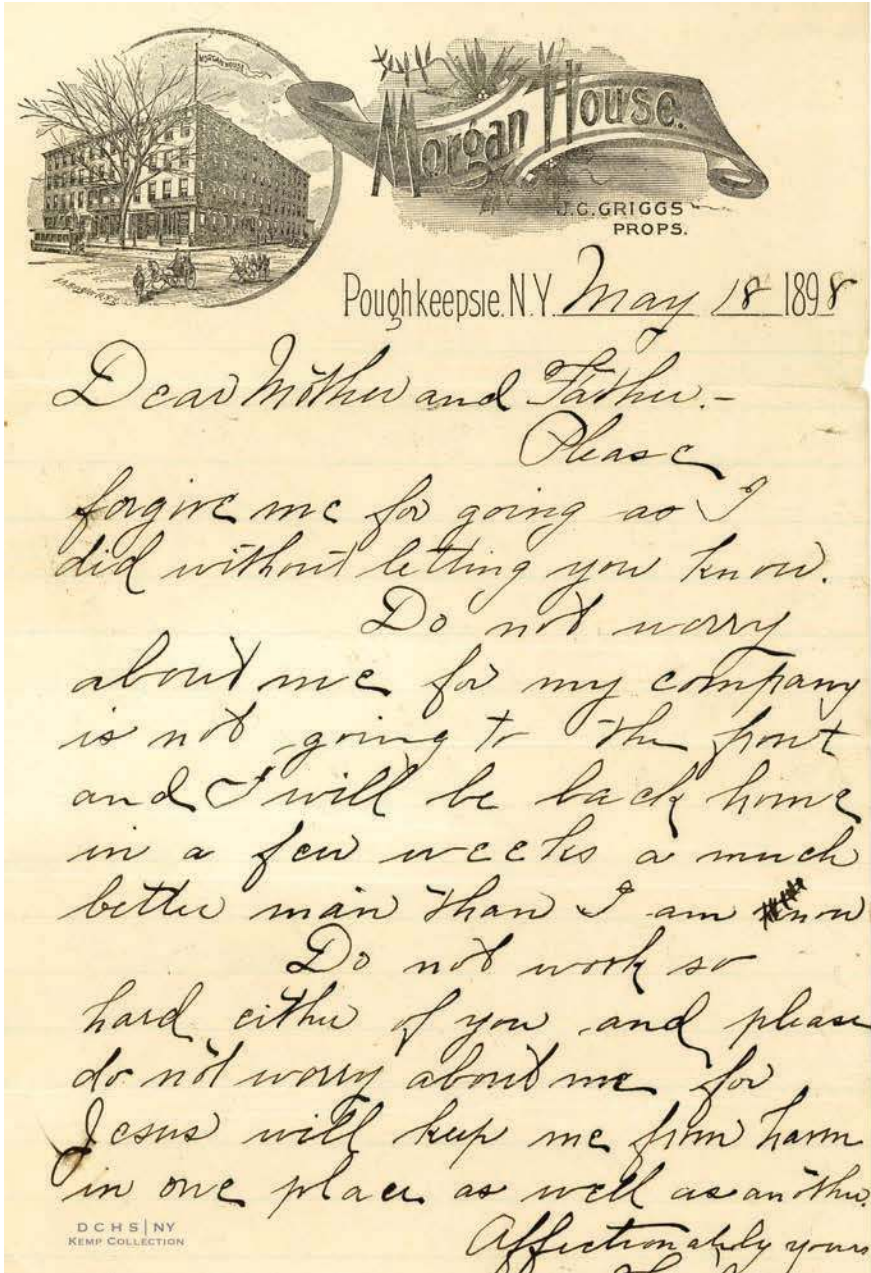 MORGAN HOUSE
Morgan House.
J.C. GRIGGS
PROPS.
Poughkeepsie. N.Y. May 18 1898
Dear Mother and Father.-
Please
forgive me for going as I
did without letting you know.
Do not worry
about me for my company
is not going to the front
and I will be back home
in a few weeks a much
better man than I am now
Do not work so
hard either of you and please
do not worry about me for
Jesus will keep me from harm
in one place as well as another.
Affectionately yours
DCHS|NY
KEMP COLLECTION